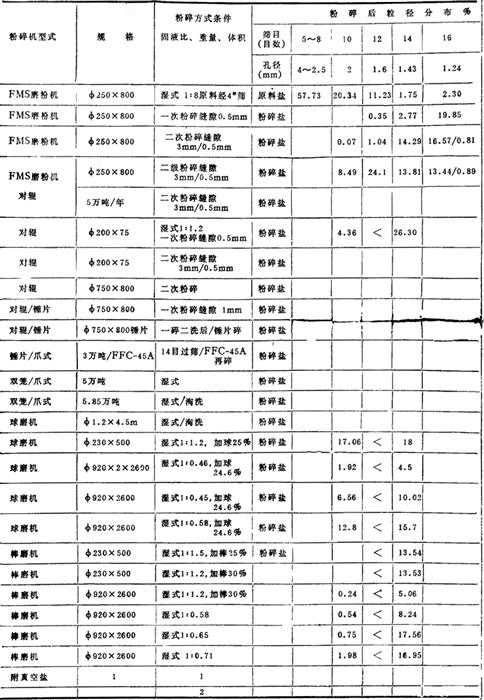 粉碎机型式 规格 粉碎方式条件 固液比、重量、体积 粉碎后粒径分布%
筛目(目数) 5~8 10 12 14 16
孔径(mm) 4~2.5 2 1.6 1.43 1.24
FMS磨粉机 φ250×800 湿式 1:8原料经4#筛 原料盐 57.73 20.34 11.23 1.75 2.30
FMS磨粉机 φ250×800 一次粉碎缝隙0.5mm 粉碎盐 0.35 2.77 19.85
FMS磨粉机 φ250×800 二次粉碎缝隙 3mm/0.5mm 粉碎盐 0.07 1.04 14.29 16.57/0.81
FMS磨粉机 φ250×800 二级粉碎缝隙 3mm/0.5mm 粉碎盐 8.49 24.1 13.81 13.44/0.89
对辊 5万吨/年 二次粉碎缝隙 3mm/0.5mm 粉碎盐
对辊 φ200×75 湿式1:1.2 一次粉碎缝隙0.5mm 粉碎盐 4.36 < 26.30
对辊 φ200×75 二次粉碎缝隙 3mm/0.5mm 粉碎盐
对辊 φ750×800 二次粉碎 粉碎盐
对辊/锤片 φ750×800 一次粉碎缝隙 1mm 粉碎盐
对辊/锤片 φ750×800锤片 一碎二洗后/锤片碎 粉碎盐
锤片/爪式 3万吨/FFC-45A 14目过筛/FFC-45A 再碎 粉碎盐
双笼/爪式 5万吨 湿式 粉碎盐
双笼/爪式 5.85万吨 湿式/淘洗 粉碎盐
球磨机 φ1.2×4.5m 湿式/淘洗 粉碎盐
球磨机 φ230×500 湿式1:1.2, 加球25% 粉碎盐 17.06 < 18
球磨机 φ920×2×2600 湿式1:0.46,加球 24.6% 粉碎盐 1.92 < 4.5
球磨机 φ920×2600 湿式1:0.45,加球 24.6% 粉碎盐 6.56 < 10.02
球磨机 φ920×2600 湿式1:0.58,加球 24.6% 粉碎盐 12.8 < 15.7
棒磨机 φ230×500 湿式1:1.5,加棒25% 粉碎盐 < 13.54
棒磨机 φ230×500 湿式1:1.2,加棒30% < 13.53
棒磨机 φ920×2600 湿式1:1.2,加棒30% 0.24 < 5.06
棒磨机 φ920×2600 湿式1:0.58 0.54 < 8.24
棒磨机 φ920×2600 湿式1:0.65 0.75 < 17.56
棒磨机 φ920×2600 湿式 1:0.71 1.98 < 16.95
附真空盐 1 1
2